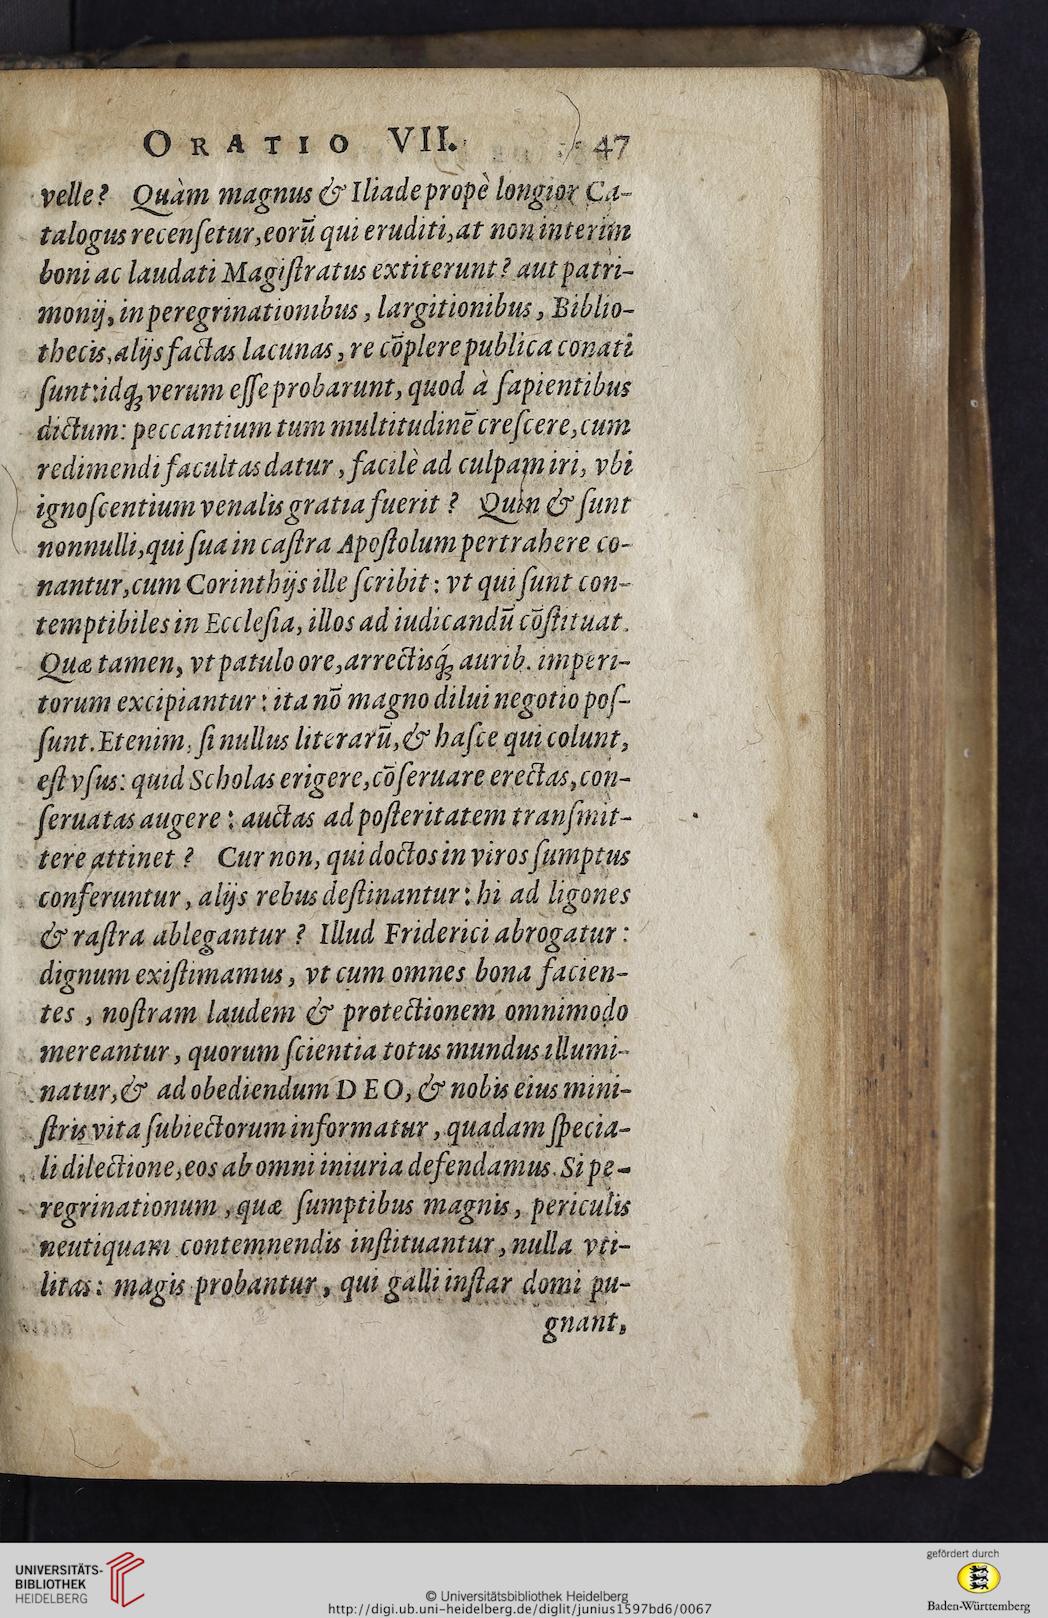 ORATIO VII. 47
velle? Quàm magnus & Iliade propè longior Ca-
talogus recenſetur, eorū qui eruditi, at non interim
boni ac laudati Magiſtratus extiterunt? aut patri-
monij, in peregrinationibus, largitionibus, Biblio-
thecis, alijs factas lacunas, re cōplere publica conati
ſunt: idq; verum eſſe probarunt, quod à ſapientibus
dictum: peccantium tum multitudinē creſcere, cum
redimendi facultas datur, facilè ad culpam iri, vbi
ignoſcentium venalis gratia fuerit? Quin & ſunt
nonnulli, qui ſua in caſtra Apoſtolum pertrahere co-
nantur, cum Corinthijs ille ſcribit: vt qui ſunt con-
temptibiles in Eccleſia, illos ad iudicandū cōſtituat.
Quæ tamen, vt patulo ore, arrectisq́; aurib. imperi-
torum excipiantur: ita nō magno dilui negotio poſ-
ſunt. Etenim, ſi nullus literarū, & haſce qui colunt,
eſt vſus: quid Scholas erigere, cōſeruare erectas, con-
ſeruatas augere: auctas ad poſteritatem tranſmit-
tere attinet? Cur non, qui doctos in viros ſumptus
conferuntur, alijs rebus deſtinantur: hi ad ligones
& raſtra ablegantur? Illud Friderici abrogatur:
dignum exiſtimamus, vt cum omnes bona facien-
tes, noſtram laudem & protectionem omnimodo
mereantur, quorum ſcientia totus mundus illumi-
natur, & ad obediendum DEO, & nobis eius mini-
ſtris vita ſubiectorum informatur, quadam ſpecia-
li dilectione, eos ab omni iniuria defendamus. Si pe-
regrinationum, quæ ſumptibus magnis, periculis
neutiquam contemnendis inſtituantur, nulla vti-
litas: magis probantur, qui galli inſtar domi pu-
gnant,
UNIVERSITÄTS-
BIBLIOTHEK
HEIDELBERG
© Universitätsbibliothek Heidelberg
http://digi.ub.uni-heidelberg.de/diglit/junius1597bd6/0067
gefördert durch
Baden-Württemberg